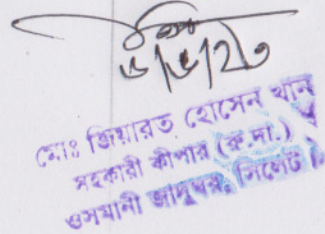 মোঃ জিয়ারত হোসেন খান
সহকারী কীপার (রু.দা.)
ওসমানী জাদুঘর, সিলেট।